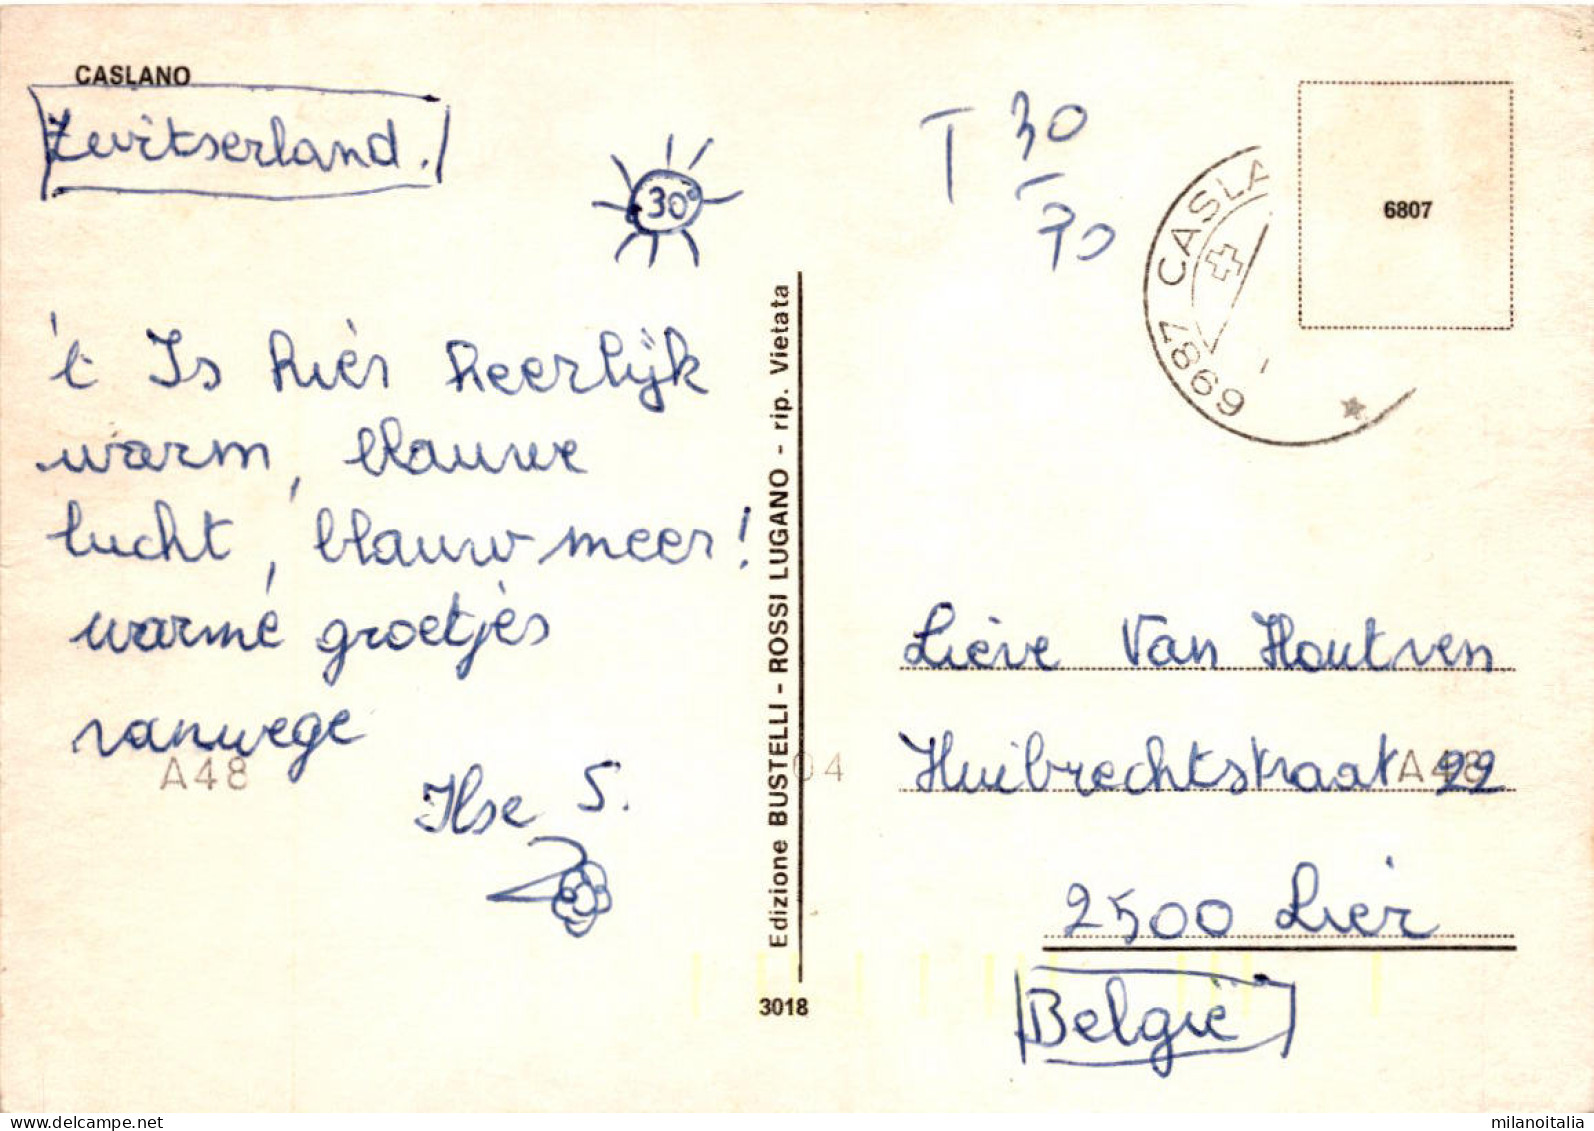 CASLANO
Zwitserland.
30°
't Is hier heerlijk
warm, blauwe
lucht, blauw meer!
warme groetjes
vanwege
A48
Ilse S.
Edizione BUSTELLI - ROSSI LUGANO - rip. Vietata
3018
T 30
70
6987 CASLA
6807
Lieve Van Houtven
Huibrechtstraat 22
04
A48
2500 Lier
België
milanoitalia